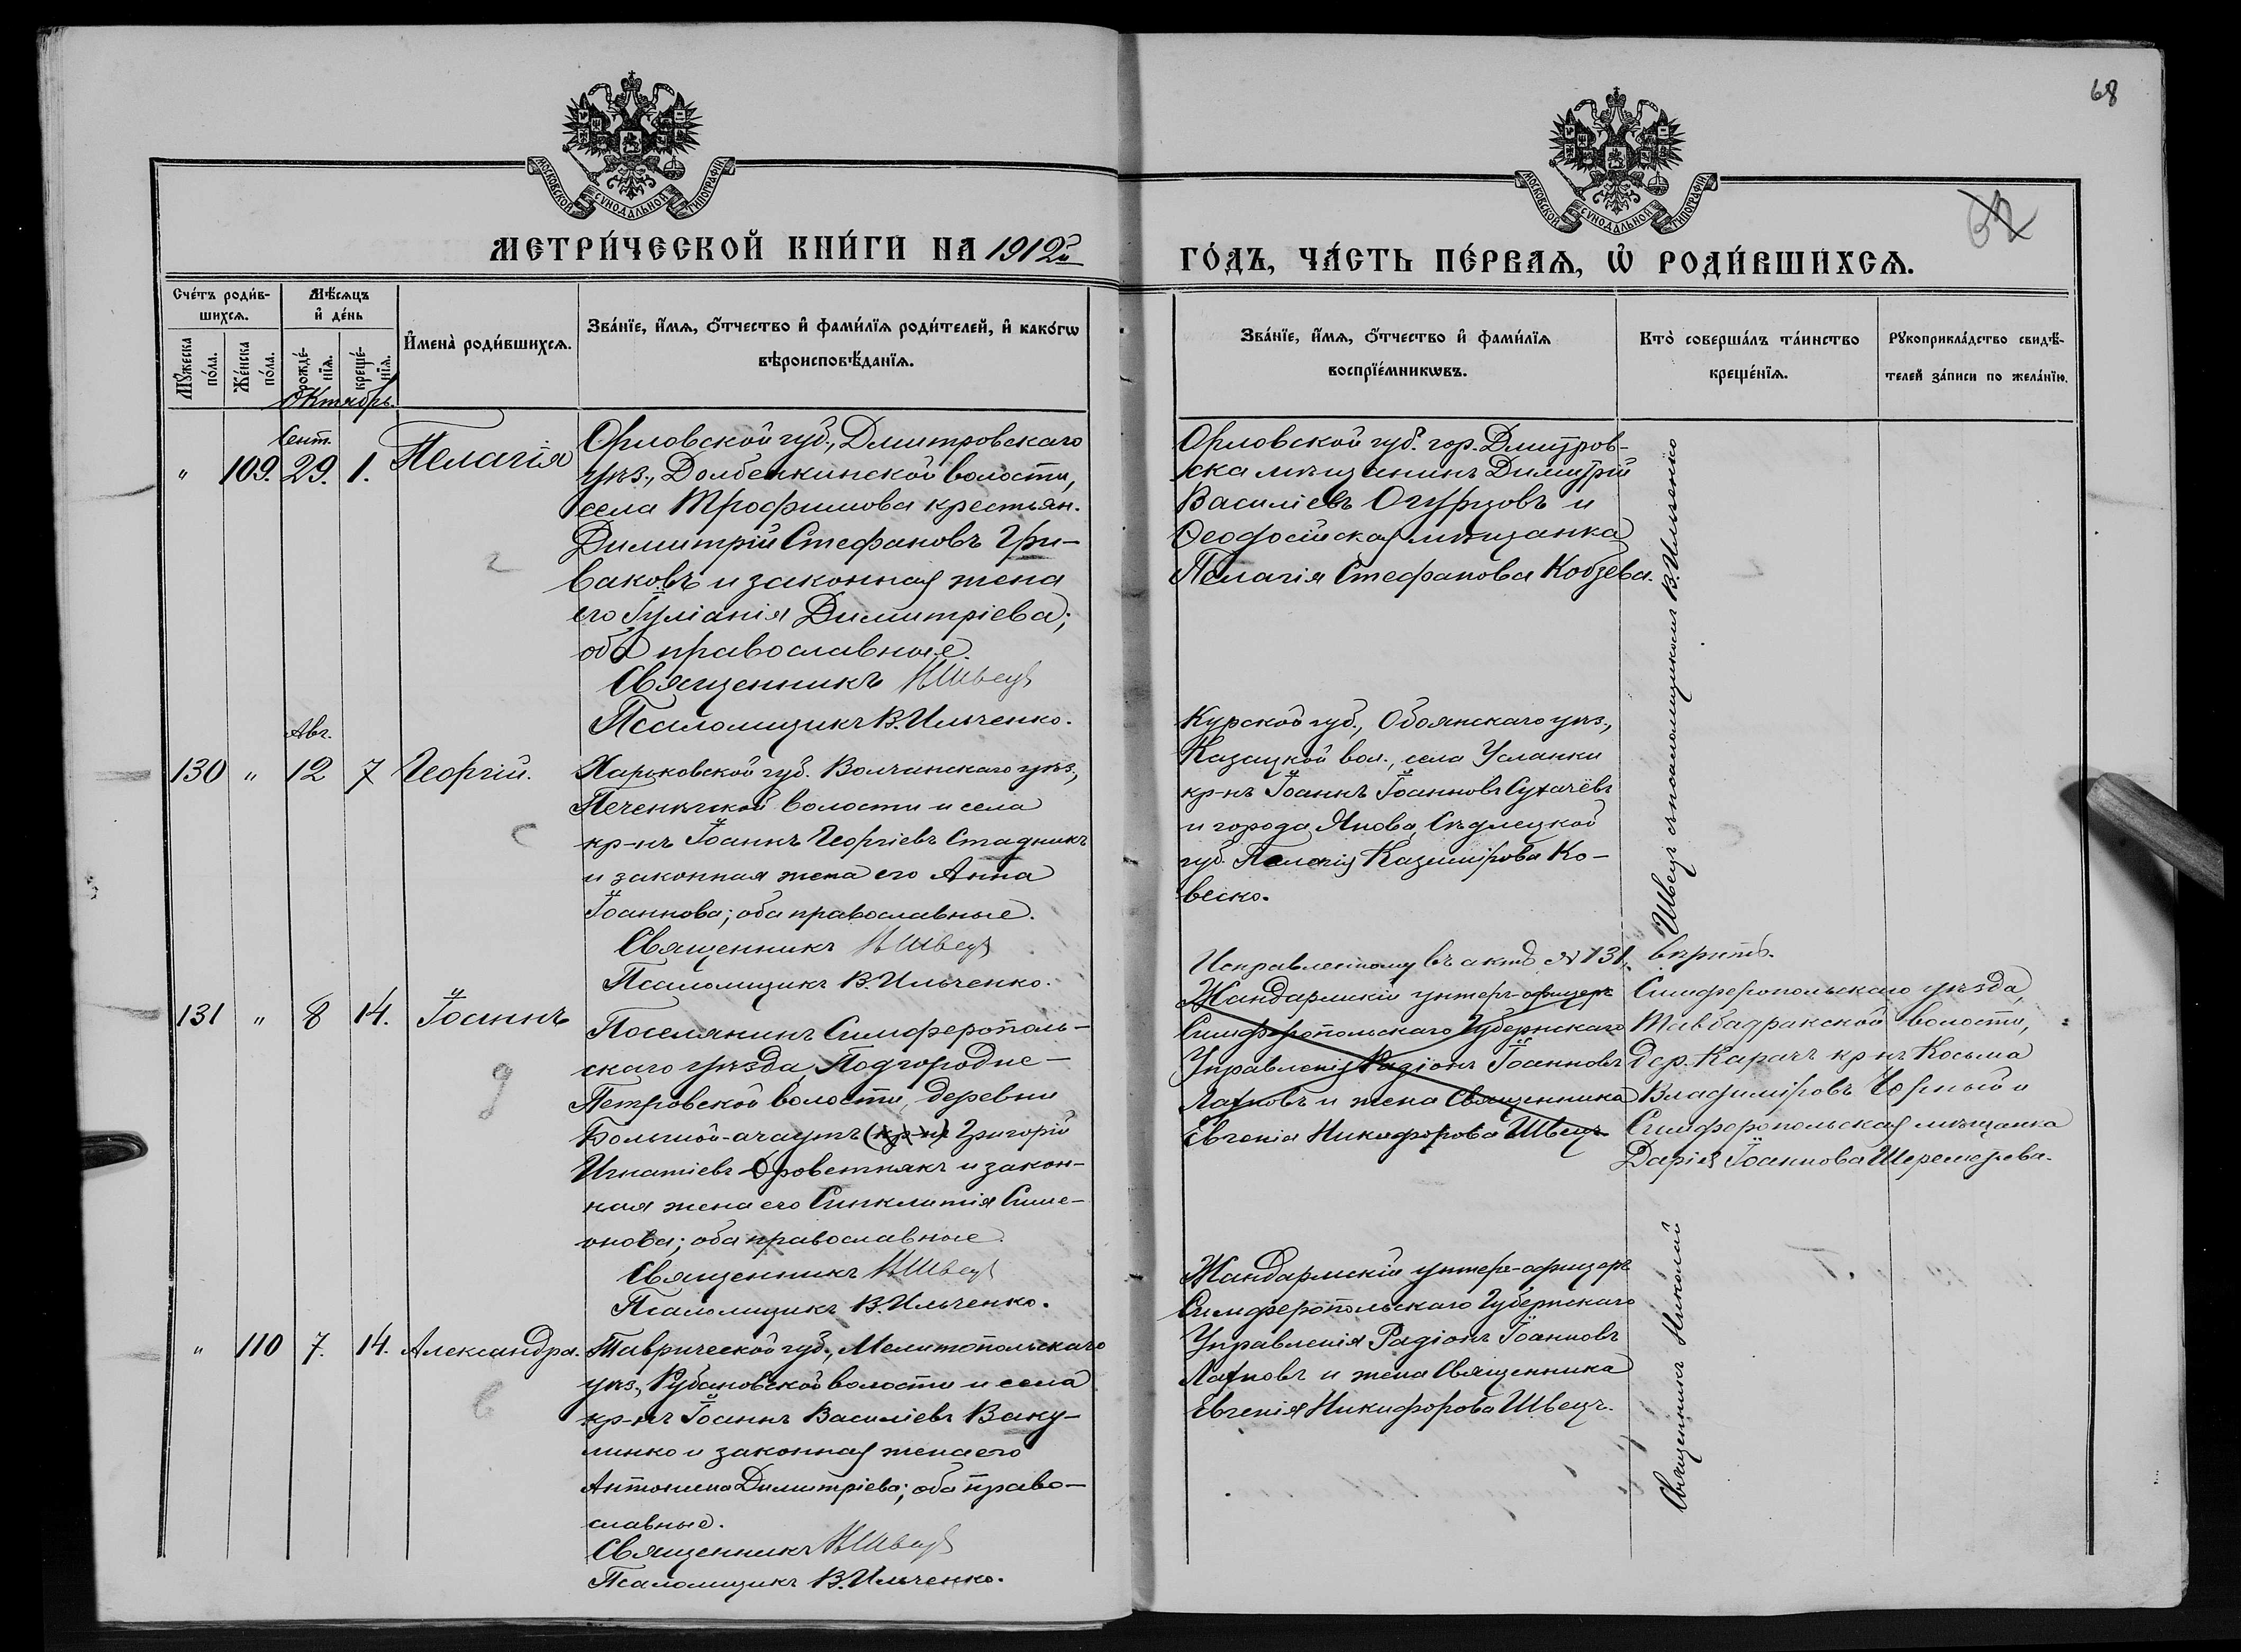 68
62
МОСКОВСКОЙ СѴНОДАЛЬНОЙ ТИПОГРАФІИ
МОСКОВСКОЙ СѴНОДАЛЬНОЙ ТИПОГРАФІИ
МЕТРИ́ЧЕСКОЙ КНИ́ГИ НА 1912й
ГО́ДЪ, ЧА́СТЬ ПЕ́РВАѦ, Ѡ҆ РОДИ́ВШИХСѦ.
Сче́тъ роди́в-
шихсѧ.
Мꙋ́жеска по́ла.
Же́нска по́ла.
Мѣ́сѧцъ
и҆ де́нь
рожде́-
нїѧ.
креще́-
нїѧ.
Октябрь.
И҆мена̀ роди́вшихсѧ.
Зва́нїе, и҆́мѧ, ѻ҆́тчество и҆ фами́лїѧ роди́телей, и҆ како́гѡ
вѣроисповѣ́данїѧ.
Зва́нїе, и҆́мѧ, ѻ҆́тчество и҆ фами́лїѧ
воспрїе́мникѡвъ.
Кто̀ соверша́лъ та́инство
креще́нїѧ.
Рꙋкоприкла́дство свидѣ́-
телей за́писи по жела́нїю.
" 109. Сент. 29. 1. Пелагія
Орловской губ., Дмитровскаго
уѣз., Долбенкинской волости,
села Трофимова крестьян.
Димитрій Стефановъ Гри-
ваковъ и законная жена
его Іуліанія Димитріева;
оба православные.
Священникъ Н Швецъ
Псаломщикъ В. Ильченко.
Орловской губ. гор. Дмитров-
ска мѣщанинъ Димитрій
Василіевъ Огурцовъ и
Ѳеодосійская мѣщанка
Пелагія Стефанова Кобзева.
130 " Авг. 12 7 Георгій.
Харьковской губ. Волчанскаго уѣз.,
Печенѣжской волости и села
кр-нъ Іоаннъ Георгіевъ Стадникъ
и законная жена его Анна
Іоаннова; оба православные.
Священникъ Н Швецъ
Псаломщикъ В. Ильченко.
Курской губ., Обоянскаго уѣз.,
Казацкой вол., села Усланки
кр-нъ Іоаннъ Іоанновъ Сухачёвъ
и города Янова, Сѣдлецкой
губ. Пелагія Казимірова Ко-
веско.
131 " 8 14. Іоаннъ
Поселянинъ Симферополь-
скаго уѣзда, Подгородне-
Петровской волости, деревни
Большой-ачаутъ (кр-нъ) Григорій
Игнатіевъ Кроветнякъ и закон-
ная жена его Синклитія Симе-
онова; оба православные.
Священникъ Н Швецъ
Псаломщикъ В. Ильченко.
Исправленному въ актѣ № 131. вѣрить.
Жандармскій унтеръ-офицеръ
Симферопольскаго Губернскаго
Управленія Радіонъ Іоанновъ
Лахновъ и жена Священника
Евгенія Никифорова Швецъ.
Симферопольскаго уѣзда,
Тавбадракской волости,
Дер. Карачъ кр-нъ Косьма
Владиміровъ Чорный и
Симферопольская мѣщанка
Дарія Іоаннова Шереметева.
" 110 7. 14. Александра.
Таврической губ., Мелитопольскаго
уѣз., Рубановской волости и села
кр-нъ Іоаннъ Василіевъ Ваку-
линко и законная жена его
Антонина Димитріева; оба право-
славные.
Священникъ Н Швецъ
Псаломщикъ В. Ильченко.
Жандармскій унтеръ-офицеръ
Симферопольскаго Губернскаго
Управленія Радіонъ Іоанновъ
Лахновъ и жена Священника
Евгенія Никифорова Швецъ.
Священникъ Николай Швецъ съ псаломщикомъ В. Ильченко